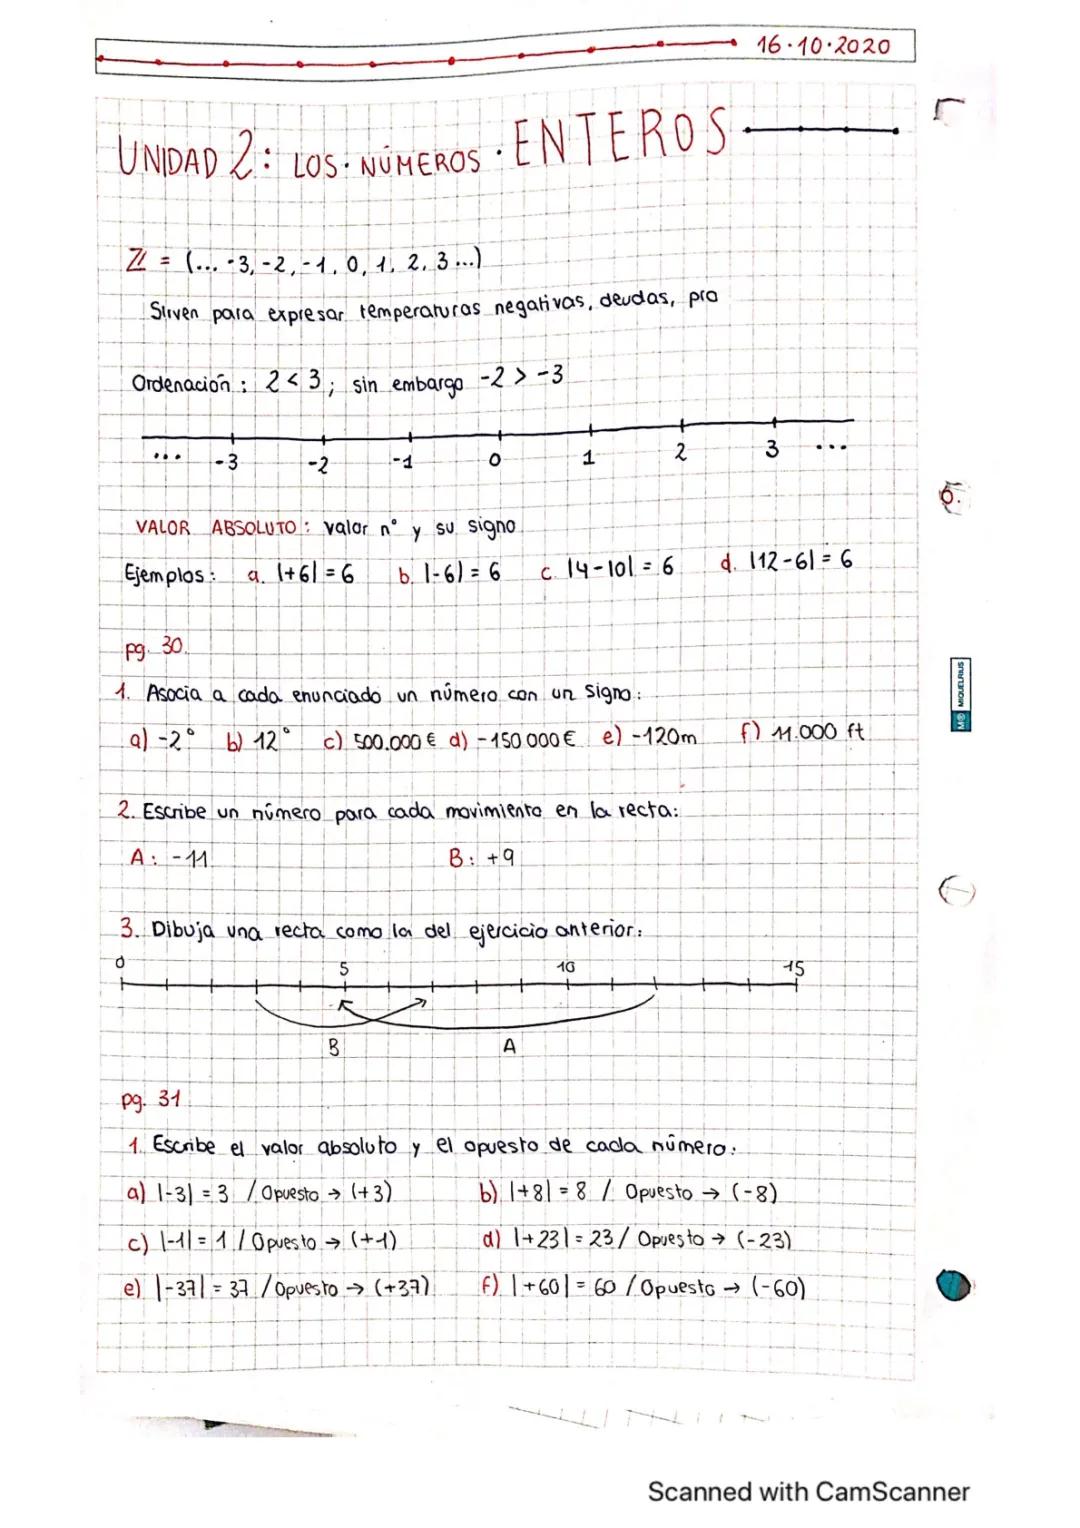 16·10·2020
UNIDAD 2: LOS · NÚMEROS · ENTEROS
ℤ = (... -3, -2, -1, 0, 1, 2, 3 ...)
Sirven para expresar temperaturas negativas, deudas, pro
Ordenación : 2 < 3 ; sin embargo -2 > -3
... -3 -2 -1 0 1 2 3 ...
VALOR ABSOLUTO : valor nº y su signo
Ejemplos : a. |+6| = 6 b. |-6| = 6 c. |4-10| = 6 d. |12-6| = 6
pg. 30.
1. Asocia a cada enunciado un número con un signo:
a) -2° b) 12° c) 500.000 € d) -150 000 € e) -120m f) 11.000 ft
2. Escribe un número para cada movimiento en la recta:
A: -11 B: +9
3. Dibuja una recta como la del ejercicio anterior:
0 5 10 15
B A
pg. 31
1. Escribe el valor absoluto y el opuesto de cada número:
a) |-3| = 3 / Opuesto → (+3) b) |+8| = 8 / Opuesto → (-8)
c) |-1| = 1 / Opuesto → (+1) d) |+23| = 23 / Opuesto → (-23)
e) |-37| = 37 / Opuesto → (+37) f) |+60| = 60 / Opuesto → (-60)
M® MIQUELRIUS
Scanned with CamScanner